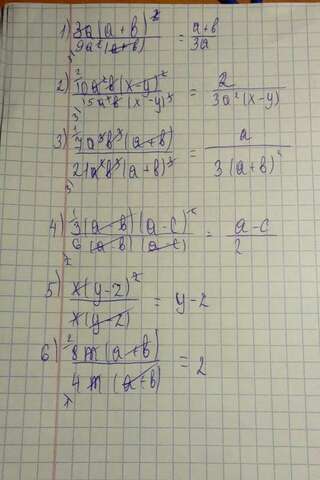 1) 3a(a+b)² / 9a²(a+b) = a+b / 3a
2) 10a²b(x-y)² / 15a⁴b(x-y)³ = 2 / 3a²(x-y)
3) 7a⁴b³(a+b) / 21a³b³(a+b)³ = a / 3(a+b)²
4) 3(a-b)(a-c)² / 6(a-b)(a-c) = a-c / 2
5) x(y-z)² / x(y-z) = y-z
6) 8m(a+b) / 4m(a+b) = 2